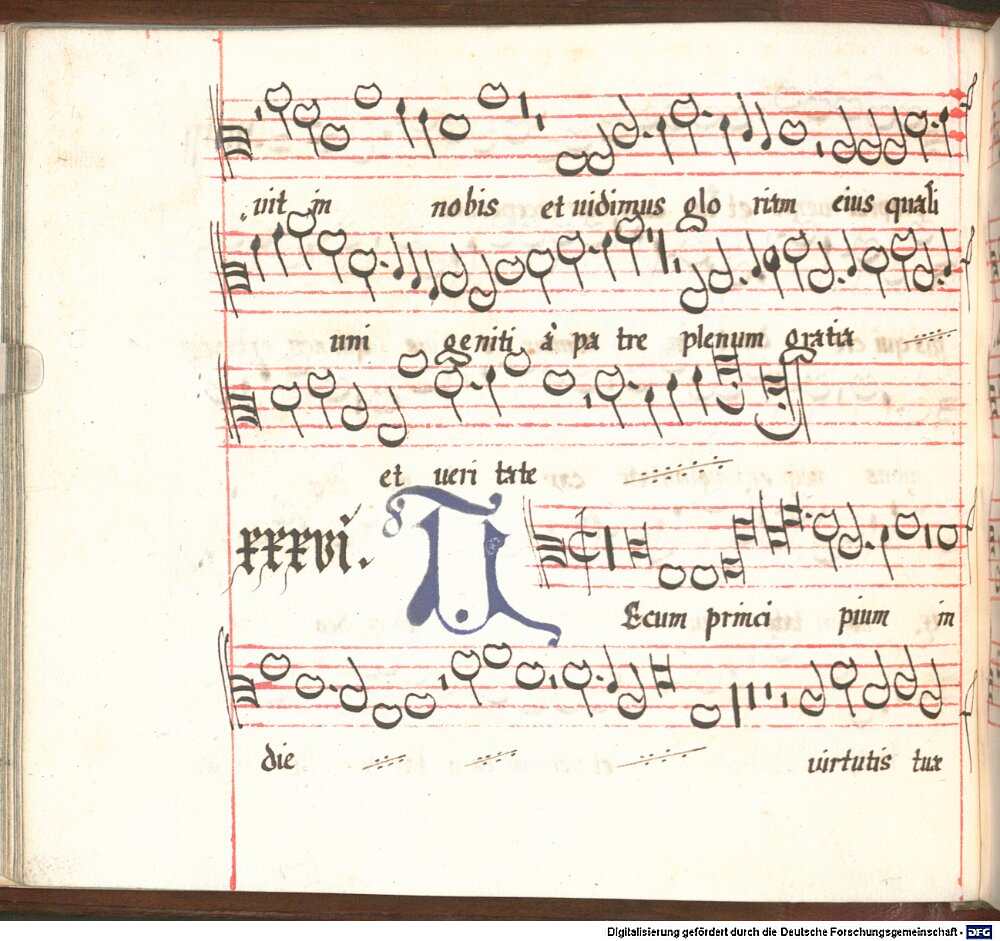 uit in nobis et uidimus glo riam eius quasi
uni geniti à pa tre plenum gratia
et ueri tate
XXXVI. T
Ecum princi pium in
die uirtutis tuæ
Digitalisierung gefördert durch die Deutsche Forschungsgemeinschaft - DFG